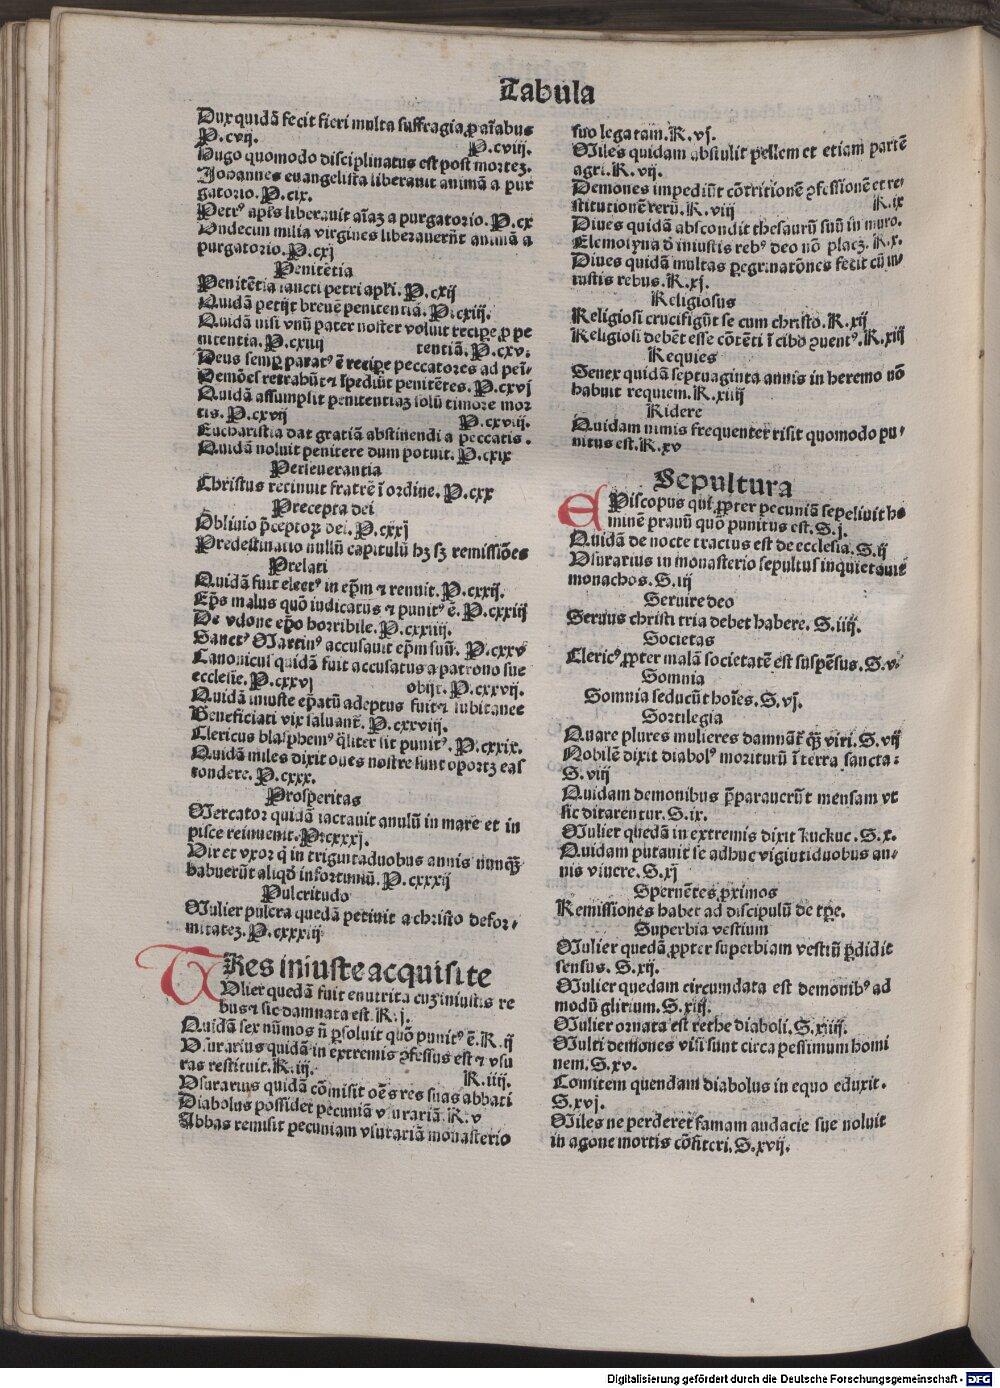 Tabula
Dux quidã fecit fieri multa suffragia ꝓ aĩabus
P.cvij. P.cviij.
Hugo quomodo disciplinatus est post mortez.
Johannes euangelista liberauit animã a pur
gatorio. P.cix.
Petrꝰ apľs liberauit aĩaz a purgatorio. P.cx
Undecim milia virgines liberauerũt animã a
purgatorio. P.cxj
Penitẽtia
Penitẽtia sancti petri apľi. P.cxij
Quidã petijt breuẽ penitentiã. P.cxiij.
Quidã nisi vnũ pater noster voluit recipe ꝓ pe
nitentia. P.cxiiij tentiã. P.cxv.
Deus semꝑ paratꝰ ẽ recipe peccatores ad peñ
Demões retrahũt ⁊ ĩpediũt penitẽtes. P.cxvj
Quidã assumpsit penitentiaz solũ timore mor
tis. P.cxvij P.cxviij.
Eucharistia dat gratiã abstinendi a peccatis.
Quidã noluit penitere dum potuit. P.cxix
Perseuerantia
Christus retinuit fratrẽ ĩ ordine. P.cxx
Precepta dei
Obliuio p̃ceptoꝝ dei. P.cxxj
Predestinatio nullũ capitulũ hꝫ sꝫ remissiões
Prelati
Quidã fuit electꝰ in ep̃m ⁊ renuit. P.cxxij.
Ep̃s malus quõ iudicatus ⁊ punitꝰ ẽ. P.cxxiij
De vdone ep̃o horribile. P.cxxiiij.
Sanctꝰ Martinꝰ accusauit ep̃m suũ. P.cxxv
Canonicus quidã fuit accusatus a patrono sue
ecclesie. P.cxxvj obijt. P.cxxvij.
Quidã iniuste ep̃atũ adeptus fuit ⁊ subitanee
Beneficiati vix saluant̃. P.cxxviij.
Clericus blasphemꝰ q̃liter sit punitꝰ. P.cxxix.
Quidã miles dixit oues nostre sunt oportꝫ eas
tondere. P.cxxx.
Prosperitas
Mercator quidã iactauit anulũ in mare et in
pisce reinuenit. P.cxxxj.
Vir et vxor q̃ in trigintaduobus annis nunq̃ꝫ
habuerũt aliqđ infortuniũ. P.cxxxij
Pulcritudo
Mulier pulcra quedã petiuit a christo defor-
mitatez. P.cxxxiij
Res iniuste acquisite
MUlier quedã fuit enutrita cuz iniustis re
bus ⁊ sic damnata est. R.j.
Quidã sex nũmos ñ ꝑsoluit quõ punitꝰ ẽ. R.ij
Usurarius quidã in extremis ꝯfessus est ⁊ vsu
ras restituit. R.iij. R.iiij.
Usurarius quidã cõmisit oẽs res suas abbati
Diabolus possidet pecuniã vsurariã. R.v
Abbas remisit pecuniam vsurariã monasterio
suo legatam. R.vj.
Miles quidam abstulit pellem et etiam partẽ
agri. R.vij.
Demones impediũt cõtritionẽ ꝯfessionẽ et re-
stitutionẽ rerũ. R.viij R.ix
Diues quidã abscondit thesaurũ suũ in muro.
Elemosyna đ iniustis rebꝰ deo nõ placꝫ. R.x.
Diues quidã multas ꝑegrinatõnes fecit cũ in-
iustis rebus. R.xj.
Religiosus
Religiosi crucifigũt se cum christo. R.xij
Religiosi debẽt esse cõtẽti ĩ cibo ꝯuentꝰ. R.xiij
Requies
Senex quidã septuaginta annis in heremo nõ
habuit requiem. R.xiiij
Ridere
Quidam nimis frequenter risit quomodo pu-
nitus est. R.xv
Sepultura
EPiscopus qui ꝓpter pecuniã sepeliuit ho
minẽ prauũ quõ punitus est. S.j.
Quidã de nocte tractus est de ecclesia. S.ij
Usurarius in monasterio sepultus inquietauit
monachos. S.iij
Seruire deo
Seruus christi tria debet habere. S.iiij.
Societas
Clericꝰ ꝓpter malã societatẽ est suspẽsus. S.v.
Somnia
Somnia seducũt hoĩes. S.vj.
Sortilegia
Quare plures mulieres damnãt̃ q̃ꝫ viri. S.vij
Nobilẽ dixit diabolꝰ moriturũ ĩ terra sancta:
S.viij
Quidam demonibus p̃parauerũt mensam vt
sic ditarentur. S.ix.
Mulier quedã in extremis dixit kuckuc. S.x.
Quidam putauit se adhuc vigintiduobus an-
nis viuere. S.xj
Spernẽtes ꝓximos
Remissiones habet ad discipulũ de tp̃e.
Superbia vestium
Mulier quedã ꝓpter superbiam vestiũ ꝑdidit
sensus. S.xij.
Mulier quedam circumdata est demonibꝰ ad
modũ glirium. S.xiij.
Mulier ornata est rethe diaboli. S.xiiij.
Multi demones visi sunt circa pessimum homi
nem. S.xv.
Comitem quendam diabolus in equo eduxit.
S.xvj.
Miles ne perderet famam audacie sue noluit
in agone mortis cõfiteri. S.xvij.
Digitalisierung gefördert durch die Deutsche Forschungsgemeinschaft - DFG